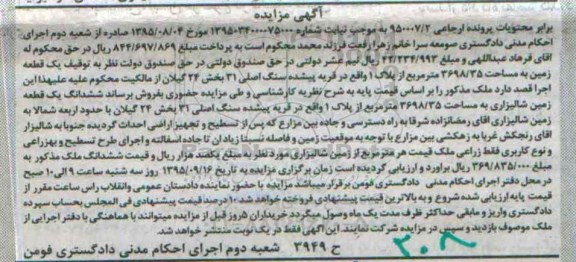 آگهی مزایده
برابر محتویات پرونده ارجاعی ۹۵۰۰۰۷/۲ به موجب نیابت شماره ۱۳۹۵۰۳۴۰۰۰۰۷۵۰۰۰ مورخ ۱۳۹۵/۰۸/۰۴ صادره از شعبه دوم اجرای
احکام مدنی دادگستری صومعه سرا خانم زهرا رفعت فرزند محمد محکوم است به پرداخت مبلغ ۸۴۴/۶۹۷/۸۶۹ ریال در حق محکوم له
آقای فرهاد عبداللهی و مبلغ ۴۲/۲۳۴/۹۹۳ ریال نیم عشر دولتی در حق صندوق دولتی در حق صندوق دولت نظر به توقیف یک قطعه
زمین به مساحت ۳۶۹۸/۳۵ مترمربع از پلاک ۱ واقع در قریه پیشده سنگ اصلی ۳۱ بخش ۲۴ گیلان از مالکیت محکوم علیه علیهذا این
اجرا قصد دارد ملک مذکور را بر اساس قیمت پایه به شرح نظریه کارشناسی و طی مزایده حضوری بفروش برساند ششدانگ یک قطعه
زمین شالیزاری به مساحت ۳۶۹۸/۳۵ مترمربع از پلاک ۱ واقع در قریه پیشده سنگ اصلی ۳۱ بخش ۲۴ گیلان با حدود اربعه شمالا به
زمین شالیزاری آقای رمضانزاده شرقا به راه دسترسی و جاده بین مزارع که پس از تسطیح و تجهیز اراضی احداث گردیده جنوبا به شالیزار
آقای رنجکش غربا به زهکشی بین مزارع با توجه به موقعیت زمین و فاصله نسبتا زیادان تا جاده اسفالته و اجرای طرح تسطیح و بهزراعی
و نوع کاربری فقط زراعی ملک قیمت هر مترمربع از زمین شالیزاری مورد نظر به مبلغ یکصد هزار ریال و قیمت ششدانگ ملک مذکور به
مبلغ ۳۶۹/۸۳۵/۰۰۰ ریال براورد و ارزیابی گردیده است زمان برگزاری مزایده به تاریخ ۱۳۹۵/۰۹/۱۶ روز سه شنبه ساعت ۹ الی ۱۰ صبح
در محل دفتر اجرای احکام مدنی دادگستری فومن برقرار میباشد مزایده با حضور نماینده دادستان عمومی وانقلاب راس ساعت مقرر از
قیمت پایه ارزیابی شده شروع و به بالاترین قیمت پیشنهادی فروخته خواهد شد ۱۰ درصد قیمت پیشنهادی فی المجلس بحساب سپرده
دادگستری واریز و مابقی حداکثر ظرف مدت یک ماه وصول میگردد خریداران ۵روز قبل از مزایده میتوانند با هماهنگی با دفتر اجرایی از
ملک موصوف بازدید و سپس در مزایده شرکت نمایند. این آگهی فقط در یک نوبت منتشر خواهد شد.
ح ۳۹۴۹ شعبه دوم اجرای احکام مدنی دادگستری فومن
۳۰۸